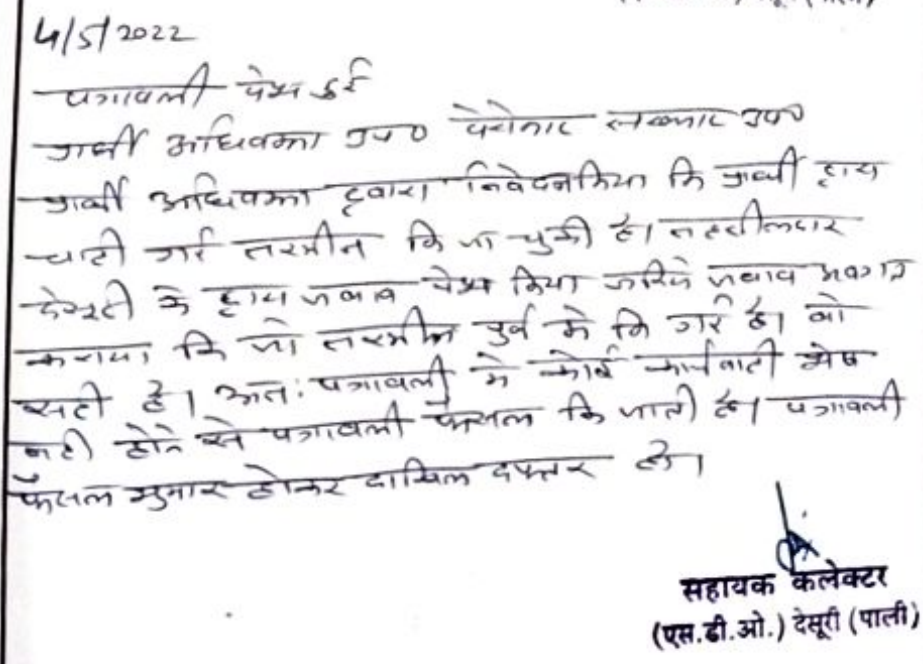 4/5/2022
पत्रावली पेश हुई
प्रार्थी अधिवक्ता उप० पेरोकार सरकार उप०
प्रार्थी अधिवक्ता द्वारा निवेदन किया कि प्रार्थी द्वारा
चाही गई तरमीन कि जा चुकी है। तहसीलदार
देसूरी के द्वारा जवाब पेश किया जरिये जवाब अवगत
कराया कि जो तरमीन पुर्व मे कि गई है। वो
सही है। अतः पत्रावली मे कोई कार्यवाही शेष
नही होने से पत्रावली फैसल कि जाती है। पत्रावली
फैसल शुमार होकर दाखिल दफ्तर हो।
सहायक कलेक्टर
(एस.डी.ओ.) देसूरी (पाली)